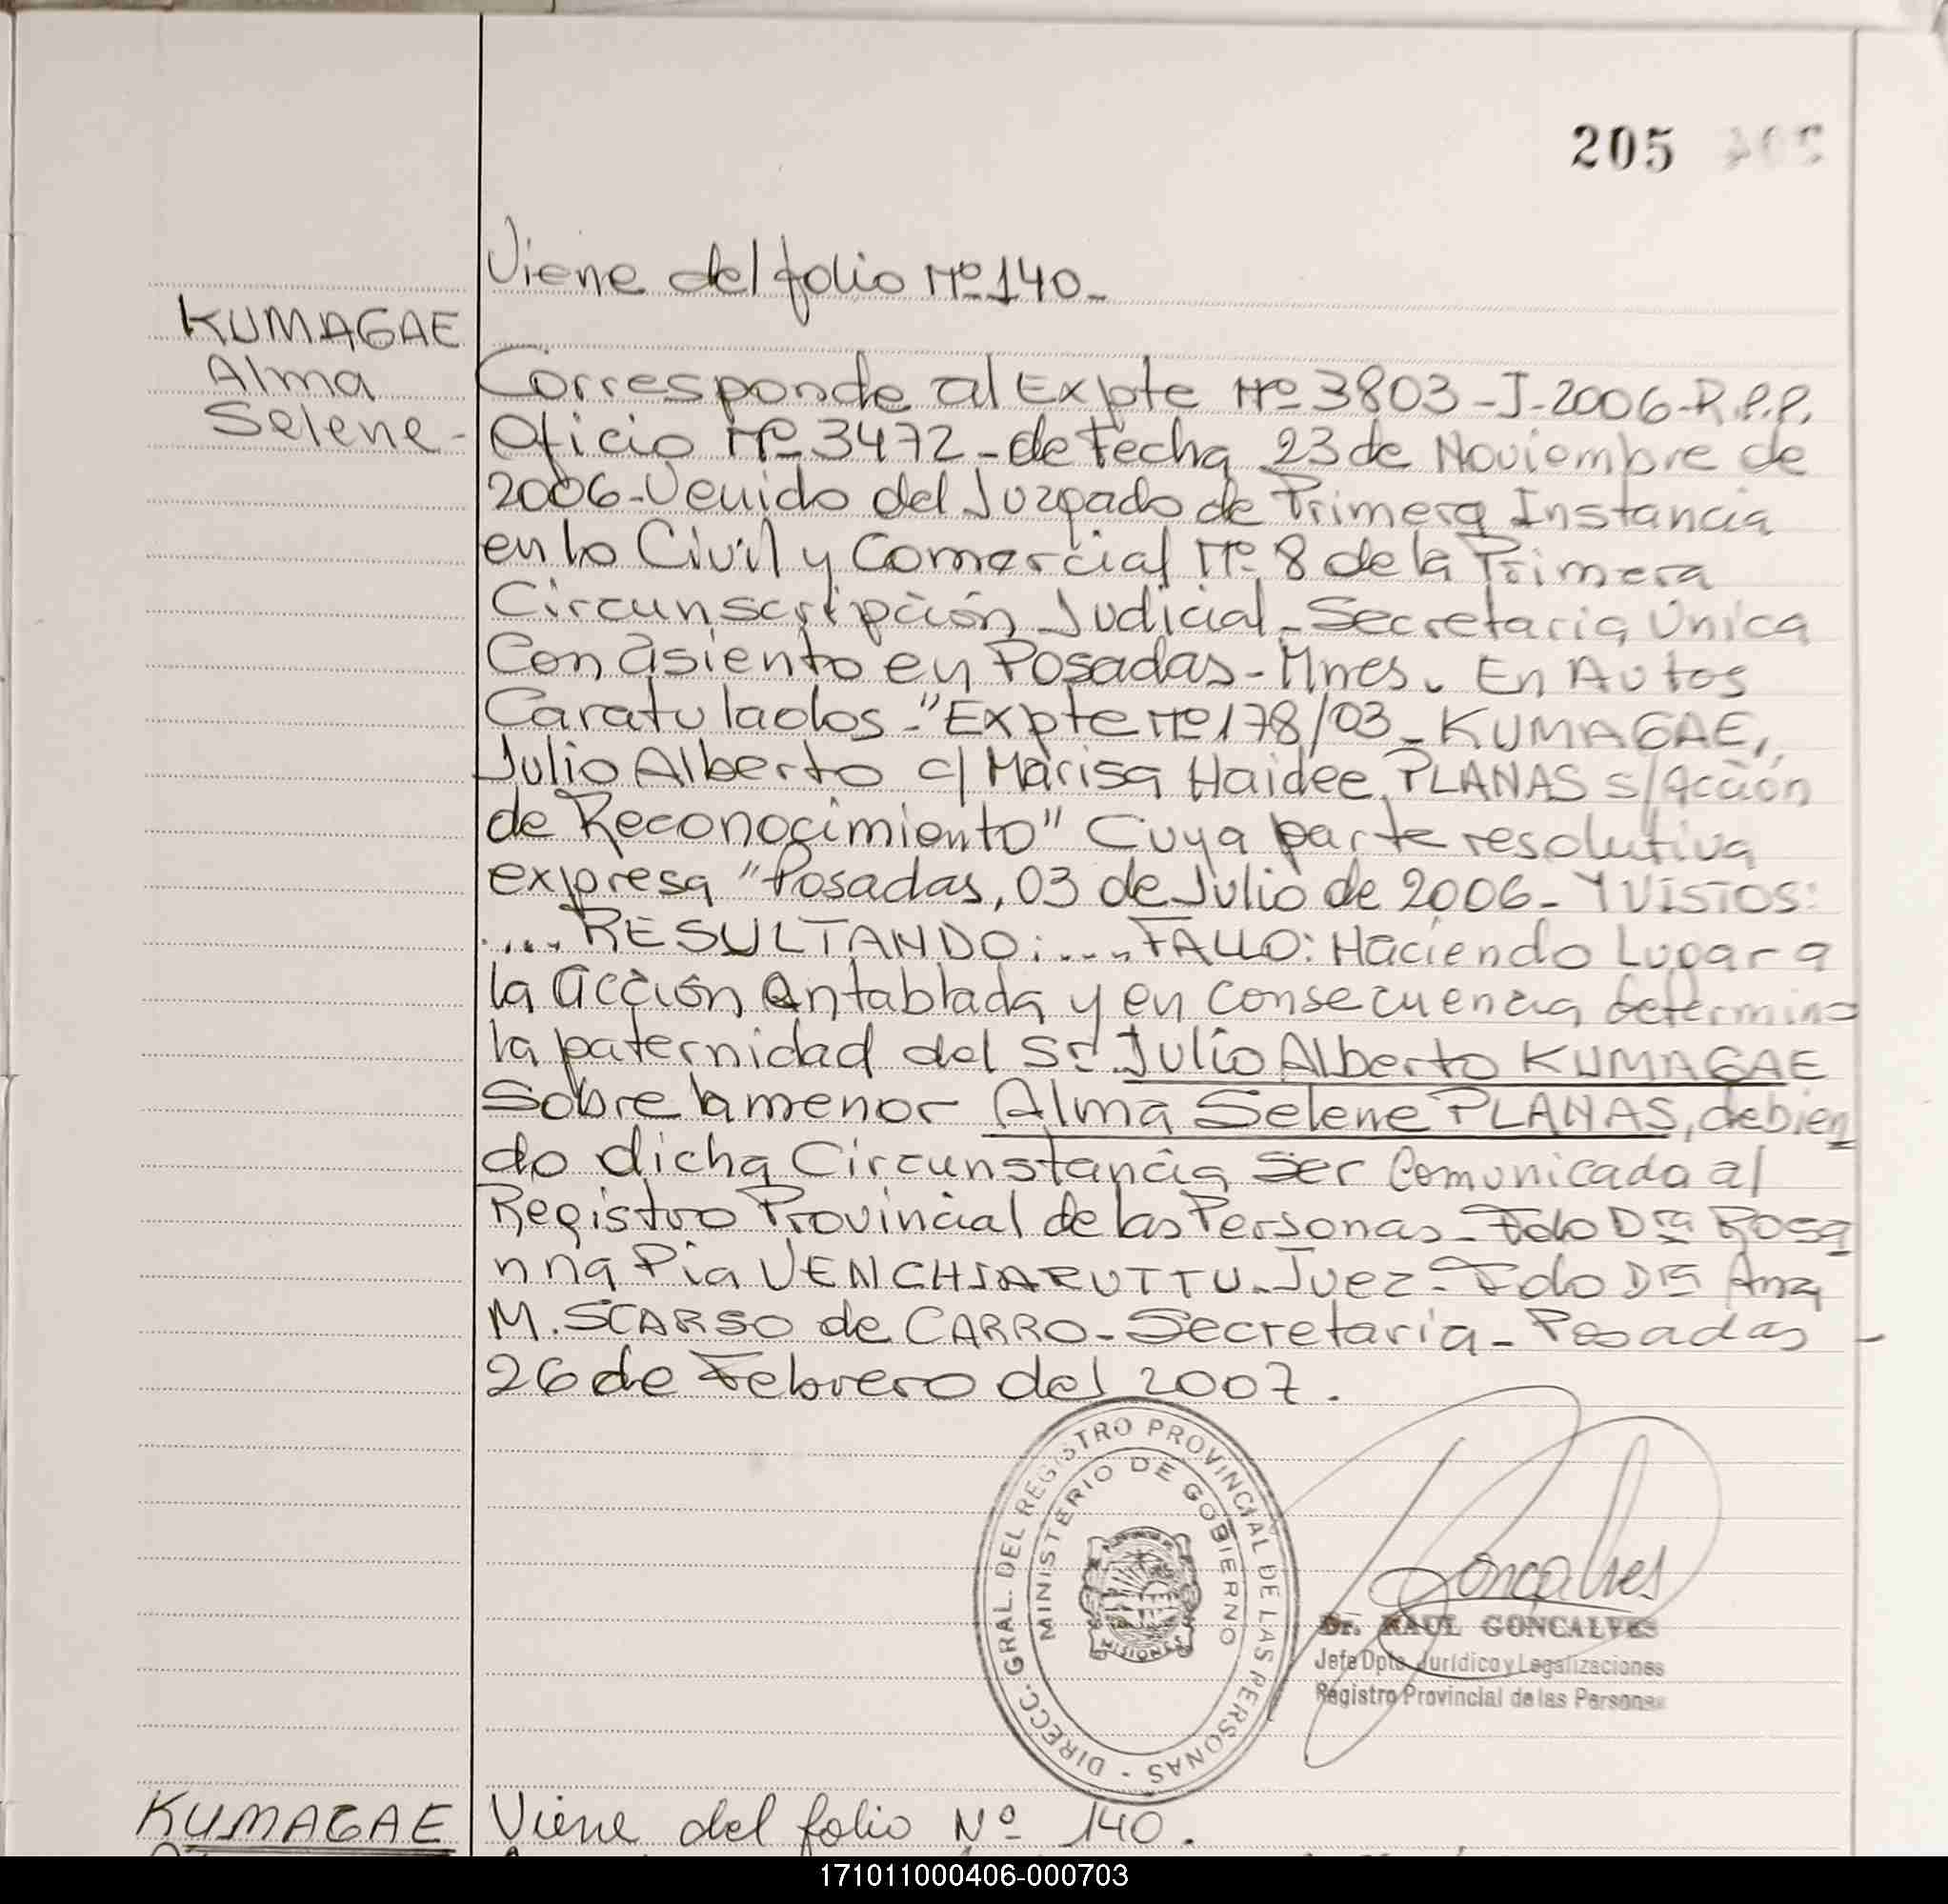 205
Viene del folio Nº 140-
KUMAGAE
Alma
Selene-
Corresponde al Expte Nº 3803-J-2006-R.P.P.
Oficio Nº 3472-de Fecha 23 de Noviembre de
2006-Venido del Juzgado de Primera Instancia
en lo Civil y Comercial Nº 8 de la Primera
Circunscripción Judicial-Secretaria Unica
Con asiento en Posadas-Mnes. En Autos
Caratulados-"Expte Nº 178/03-KUMAGAE,
Julio Alberto c/ Marisa Haidee PLANAS s/Acción
de Reconocimiento" Cuya parte resolutiva
expresa "Posadas, 03 de Julio de 2006- Y VISTOS:
.... RESULTANDO: .... FALLO: Haciendo Lugar a
la acción entablada y en consecuencia determino
la paternidad del Sr. Julio Alberto KUMAGAE
Sobre la menor Alma Selene PLANAS, debien
do dicha Circunstancia ser comunicada al
Registro Provincial de las Personas-Fdo Dra Rosa
nna Pia VENCHIARUTTU-Juez-Fdo Dra Ana
M. SCARSO de CARRO-Secretaria-Posadas-
26 de Febrero del 2007.
DIRECC. GRAL. DEL REGISTRO PROVINCIAL DE LAS PERSONAS -
MINISTERIO DE GOBIERNO
MISIONES
Goncalves
Dr. RAUL GONCALVES
Jefe Dpto. Jurídico y Legalizaciones
Registro Provincial de las Personas
KUMAGAE
Viene del folio Nº 140.
171011000406-000703